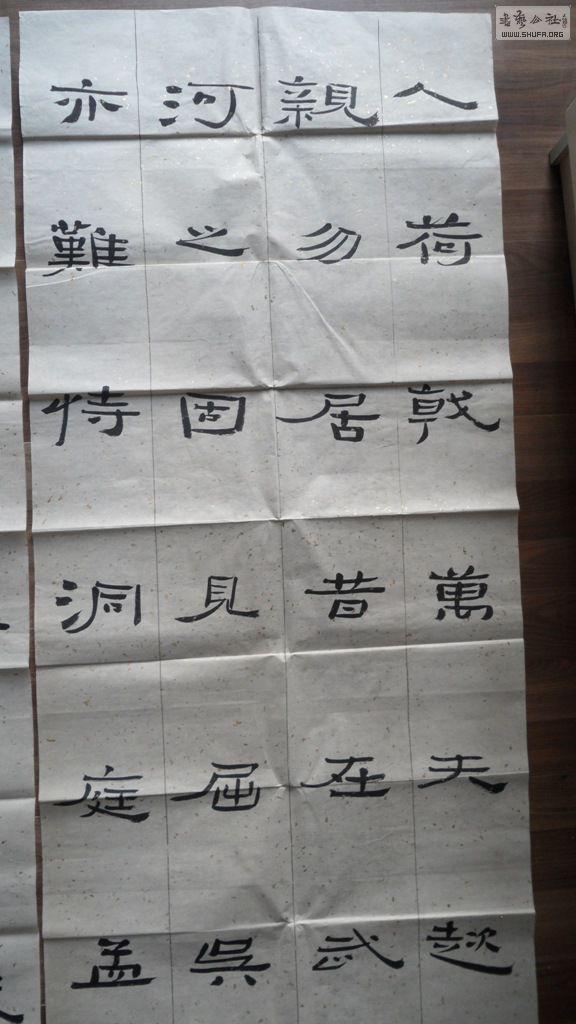 人荷戟萬夫趑
親勿居昔在武
河之固見屈吳
亦難恃洞庭孟
書藝公社
WWW.SHUFA.ORG